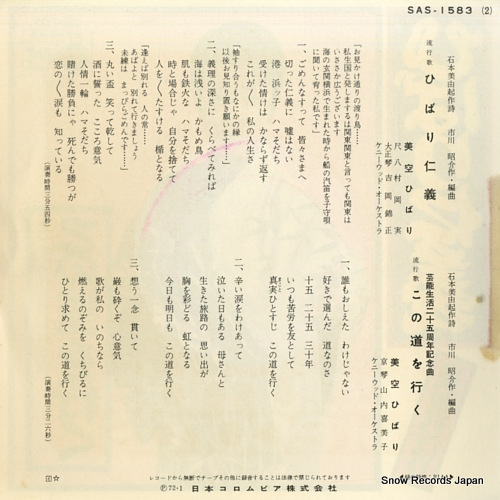 SAS-1583 (2)
石本美由起作詩　市川昭介作・編曲
流行歌　ひばり仁義
美空ひばり
尺八 村岡実
大正琴 吉岡錦正
ケニーウッド・オーケストラ
「お見かけ通りの渡り鳥……
私生国と発しまするは関東関東と言っても関東は
いささか広うございます
海の玄関横浜で生まれた時から船の汽笛を子守唄
に聞いて育った私です」
一、ごめんなすって 皆々さまへ
切った仁義に 嘘はない
港 浜ッ子 ハマそだち
受けた情けは かならず返す
これがく 私の人生さ
「袖すり合うもなにかの縁
以後お見知り置き願います……」
二、義理の深さに くらべてみれば
海は浅いよ かもめ鳥
肌も鉄火な ハマそだち
時と場合じゃ 自分を捨てて
人をくたすける 楯となる
「逢えば別れる 人の常……
あばよと 別れて行きましょう
未練は まっぴらごめんです……」
三、丸い盃 笑って乾して
酒に誓った こころ意気
人情一輪 ハマそだち
賭けた勝負にゃ 死んでも勝つが
恋のく涙も 知っている
(演奏時間三分五四秒)
石本美由起作詩　市川昭介作・編曲
芸能生活二十五周年記念曲
流行歌　この道を行く
美空ひばり
京琴 山内喜美子
ケニーウッド・オーケストラ
一、誰もおしえた わけじゃない
好きで選んだ 道なのさ
十五 二十五 三十年
いつも苦労を友として
真実ひとすじ この道を行く
二、辛い涙をわけあって
泣いた日もある 母さんと
生きた旅路の 思い出が
胸を彩どる 虹となる
今日も明日も この道を行く
三、想う一念 貫いて
巌も砕くぞ 心意気
歌が私の いのちなら
燃えるのぞみを くちびるに
ひとり求めて この道を行く
(演奏時間三分二六秒)
レコードから無断でテープその他に録音することは法律で禁じられております
Ⓟ72・1 日本コロムビア株式会社
Snow Records Japan